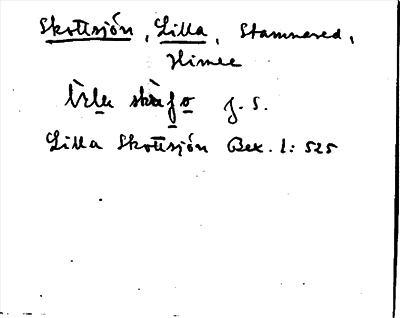 Skottsjön, Lilla, Stamnared,
Himle
skåfo f. S.
Lilla Skottsjön Bex. 1: 525